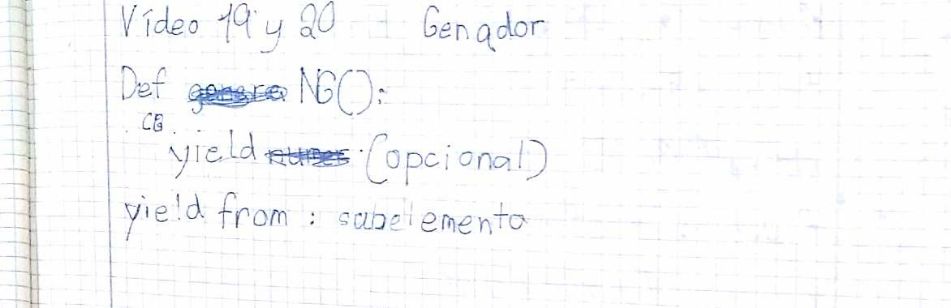 Vídeo 19 y 20 Genador
Def NG():
CB
yield (opcional)
yield from : sabelemento